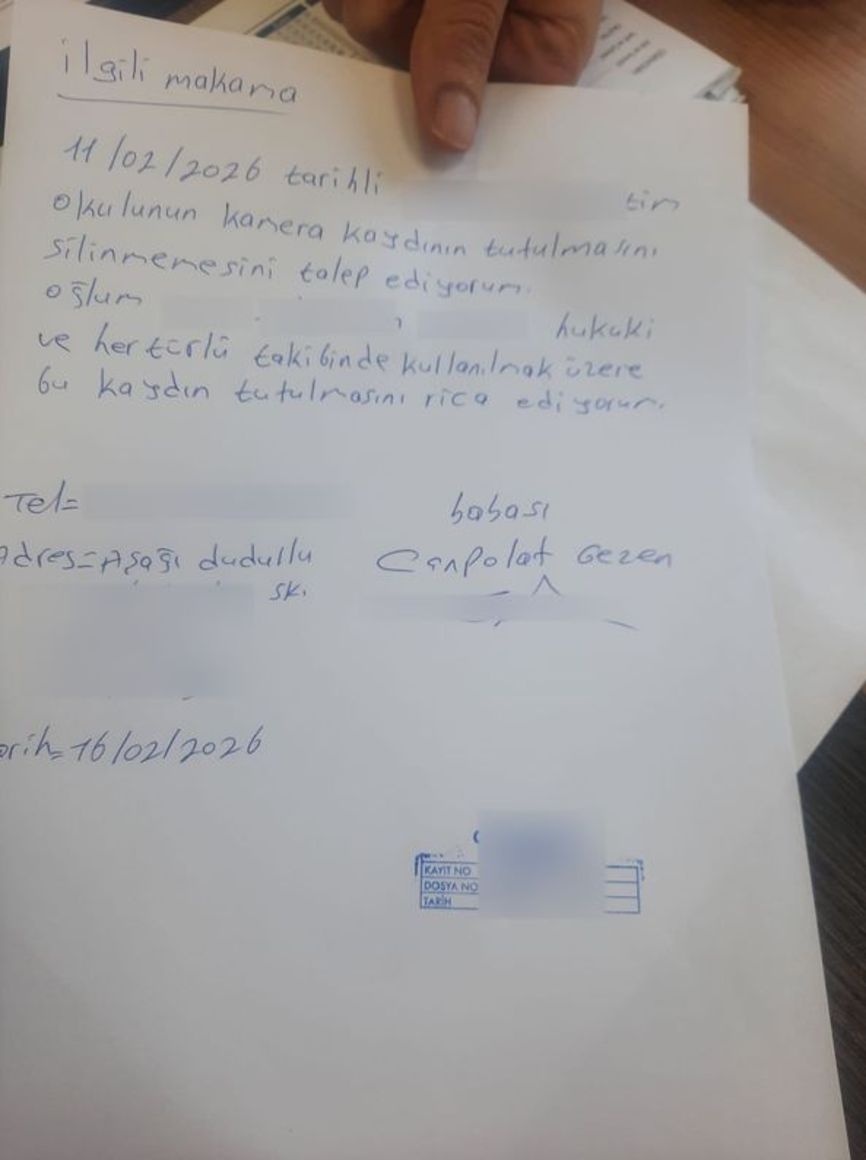 ilgili makama
11/02/2026 tarihli tim
okulunun kamera kaydının tutulmasını
silinmemesini talep ediyorum.
oğlum , hukuki
ve hertürlü takibinde kullanılmak üzere
bu kaydın tutulmasını rica ediyorum.
Tel=
babası
Adres=Aşağı dudullu
Canpolat Gezen
sk.
arih=16/02/2026
KAYIT NO
DOSYA NO
TARİH